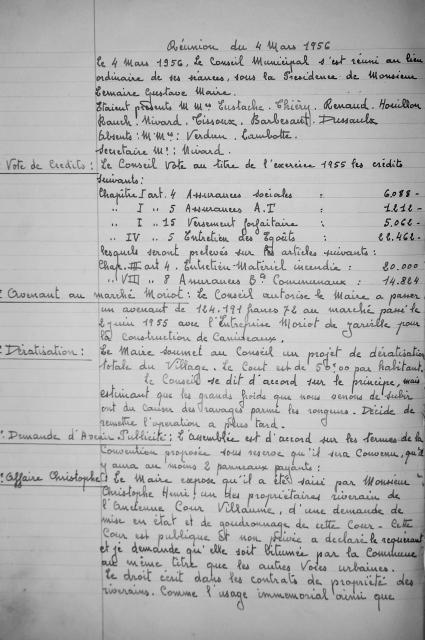 Réunion du 4 Mars 1956
Le 4 Mars 1956, Le Conseil Municipal s'est réuni au lieu
ordinaire de ses séances, sous la Présidence de Monsieur
Lemaire Gustave Maire.
Etaient présents M Mrs Eustache. Thiéry. Renaud. Houillon
Bauch. Nivard. Tissoux. Barbesant. Dussaulx
Absents : M Mrs : Verdun. Lambotte.
Secrétaire Mr : Nivard.
Vote de Crédits : Le Conseil Vote au titre de l'exercice 1955 les crédits
suivants :
Chapitre I art. 4 Assurances sociales : 6.088 -
" I " 5 Assurances A.T : 1.212 -
" I " 15 Versement forfaitaire : 5.062 -
" IV " 5 Entretien des Egoûts : 22.462 -
lesquels seront prélevés sur les articles suivants :
Chap. III art 4. Entretien Matériel incendie : 20.000
" VIII " 8 Assurances Bts Communaux : 14.824
Avenant au marché Moriot : Le Conseil autorise le Maire a passer
un avenant de 124.191 francs 72 au marché passé le
2 juin 1955 avec l'Entreprise Moriot de pour
la Construction de Caniveaux.
Dératisation : Le Maire soumet au Conseil un projet de dératisation
totale du Village. Le Cout est de 50,00 par habitant.
Le Conseil se dit d'accord sur le principe, mais
estimant que les grands froids que nous venons de subir
ont du causer des ravages parmi les rongeurs. Décide de
remettre l'opération a plus tard.
Demande d' Publicité : L'assemblée est d'accord sur les termes de la
Convention proposée sous réserve qu'il sera Convenu, qu'il
y aura au moins 2 panneaux payants :
Affaire Christophe : Le Maire expose qu'il a été saisi par Monsieur
Christophe Henri, un des propriétaires riverain de
l'Ancienne Cour Villaume, d'une demande de
mise en état et de goudronnage de cette Cour - Cette
Cour est publique et non privée a déclaré le requérant
et je demande qu'elle soit bitumée par la Commune
au même titre que les autres Voies urbaines.
Le droit écrit dans les contrats de propriété des
riverains. Comme l'usage immémorial ainsi que